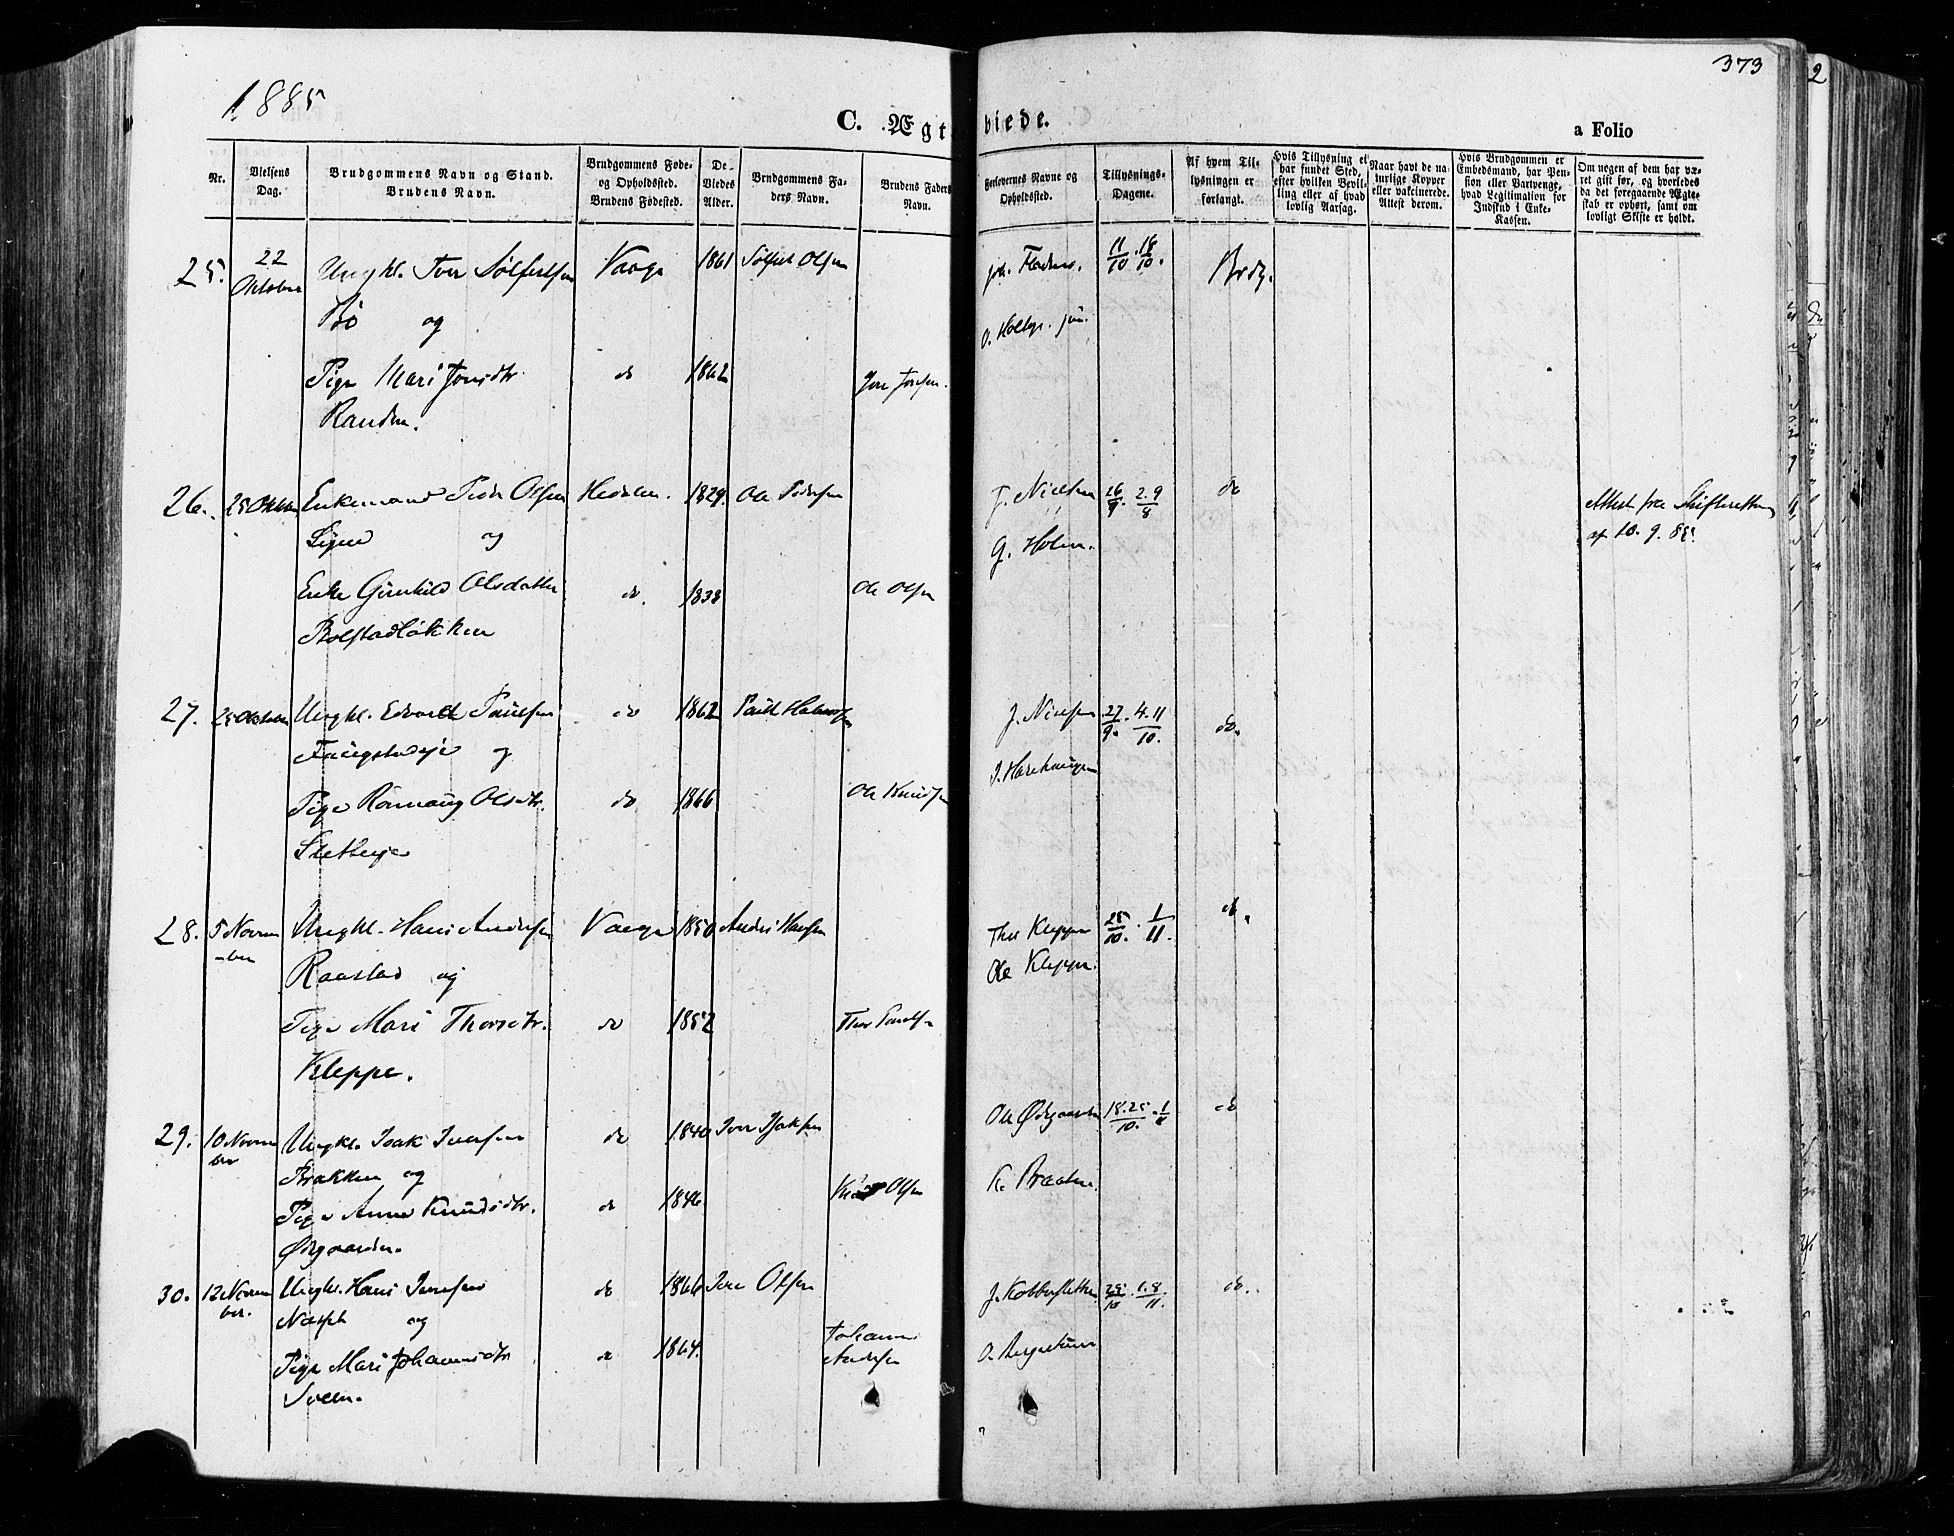 1885
373
2
C. Ægteviede.
a Folio
Nr.
Vielsens Dag.
Brudgommens Navn og Stand.
Brudens Navn.
Brudgommens Føde- og Opholdssted.
Brudens Fødested.
De Viedes Alder.
Brudgommens Faders Navn.
Brudens Faders Navn.
Forlovernes Navne og Opholdssted.
Tillysnings-Dagene.
Af hvem Tillysningen er forlangt.
Hvis Tillysning ei har fundet Sted, efter hvilken Bevilling eller af hvad lovlig Aarsag.
Naar havt de naturlige Kopper eller vakcinerede. Attest derom.
Hvis Brudgommen er Embedsmand, har Pension eller Vartpenge, hvad Legitimation for Indskud i Enke-Kassen.
Om nogen af dem har været gift før, og hvorledes da det foregaaende Ægteskab er ophørt, samt om lovligt Skifte er holdt.
25. 22 Oktober Ungkl. Iver Sølfestsen Vaage 1861 Sølfest Olsen 11/10 . 18/10. Brdg.
Bø og
Pige Mari Jonsdtr. do 1862 Jon Jonsen.
Randen.
26. 25 Oktober Enkemand Peder Olsen Hedalen. 1829. Ole Pedersen J. Nielsen 26/9 . 2.9/8 do Attest fra Skifteretten
og G. Holen. af 10. 9. 85.
Enke Gunhild Olsdatter do. 1838 Ole Olsen
Bolstadløkken
27. 25 Oktober Ungkl. Edvard Paulsen do 1862 Paul J. Nielsen 27/9. 4.11/10. do.
og
Pige Rønnaug Olsdtr. do 1866 Ole Knudsen
28. 5 November Ungkl. Hans Andersen Vaage 1850 Anders Hansen Thor Kleppe 25/10. 1/11. do.
Raastad og Ole Kleppe.
Pige Mari Thorsdtr. do 1852 Thor Paulsen
Kleppe.
29. 10 November Ungkl. Isak Iversen do 1840 Iver Isaksen Ole Ødegaarden 18.25/10. 1/11 do
Brakken og K. Braaten.
Pige Anne Knudsdtr. do 1846. Knud Olsen
Ødegaarden.
30. 12 November. Ungkl. Hans Iversen do 1866 Iver Olsen 25/10 1.8/11. do.
og
Pige Mari Johannesdtr do 1864. Johannes Andersen
Sveen.